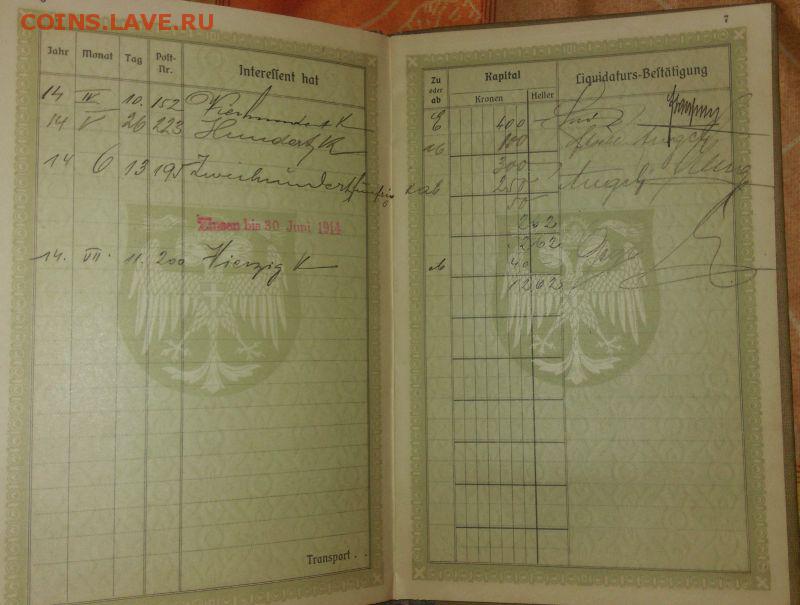 COINS.LAVE.RU
7
Jahr Monat Tag Post-Nr. Interessent hat
Zu oder ab Kapital Kronen Heller Liquidaturs-Bestätigung
14 IV 10. 152 Vierhundert K
E 400 -
14 V 26 223 Hundert K
ab 100
300
14 6 13 195 Zweihundertfünfzig
ab 250
50
Zinsen bis 30. Juni 1914
2 02
52 02
14. VII. 11. 200 Vierzig K
ab 40
12 02
Transport . .